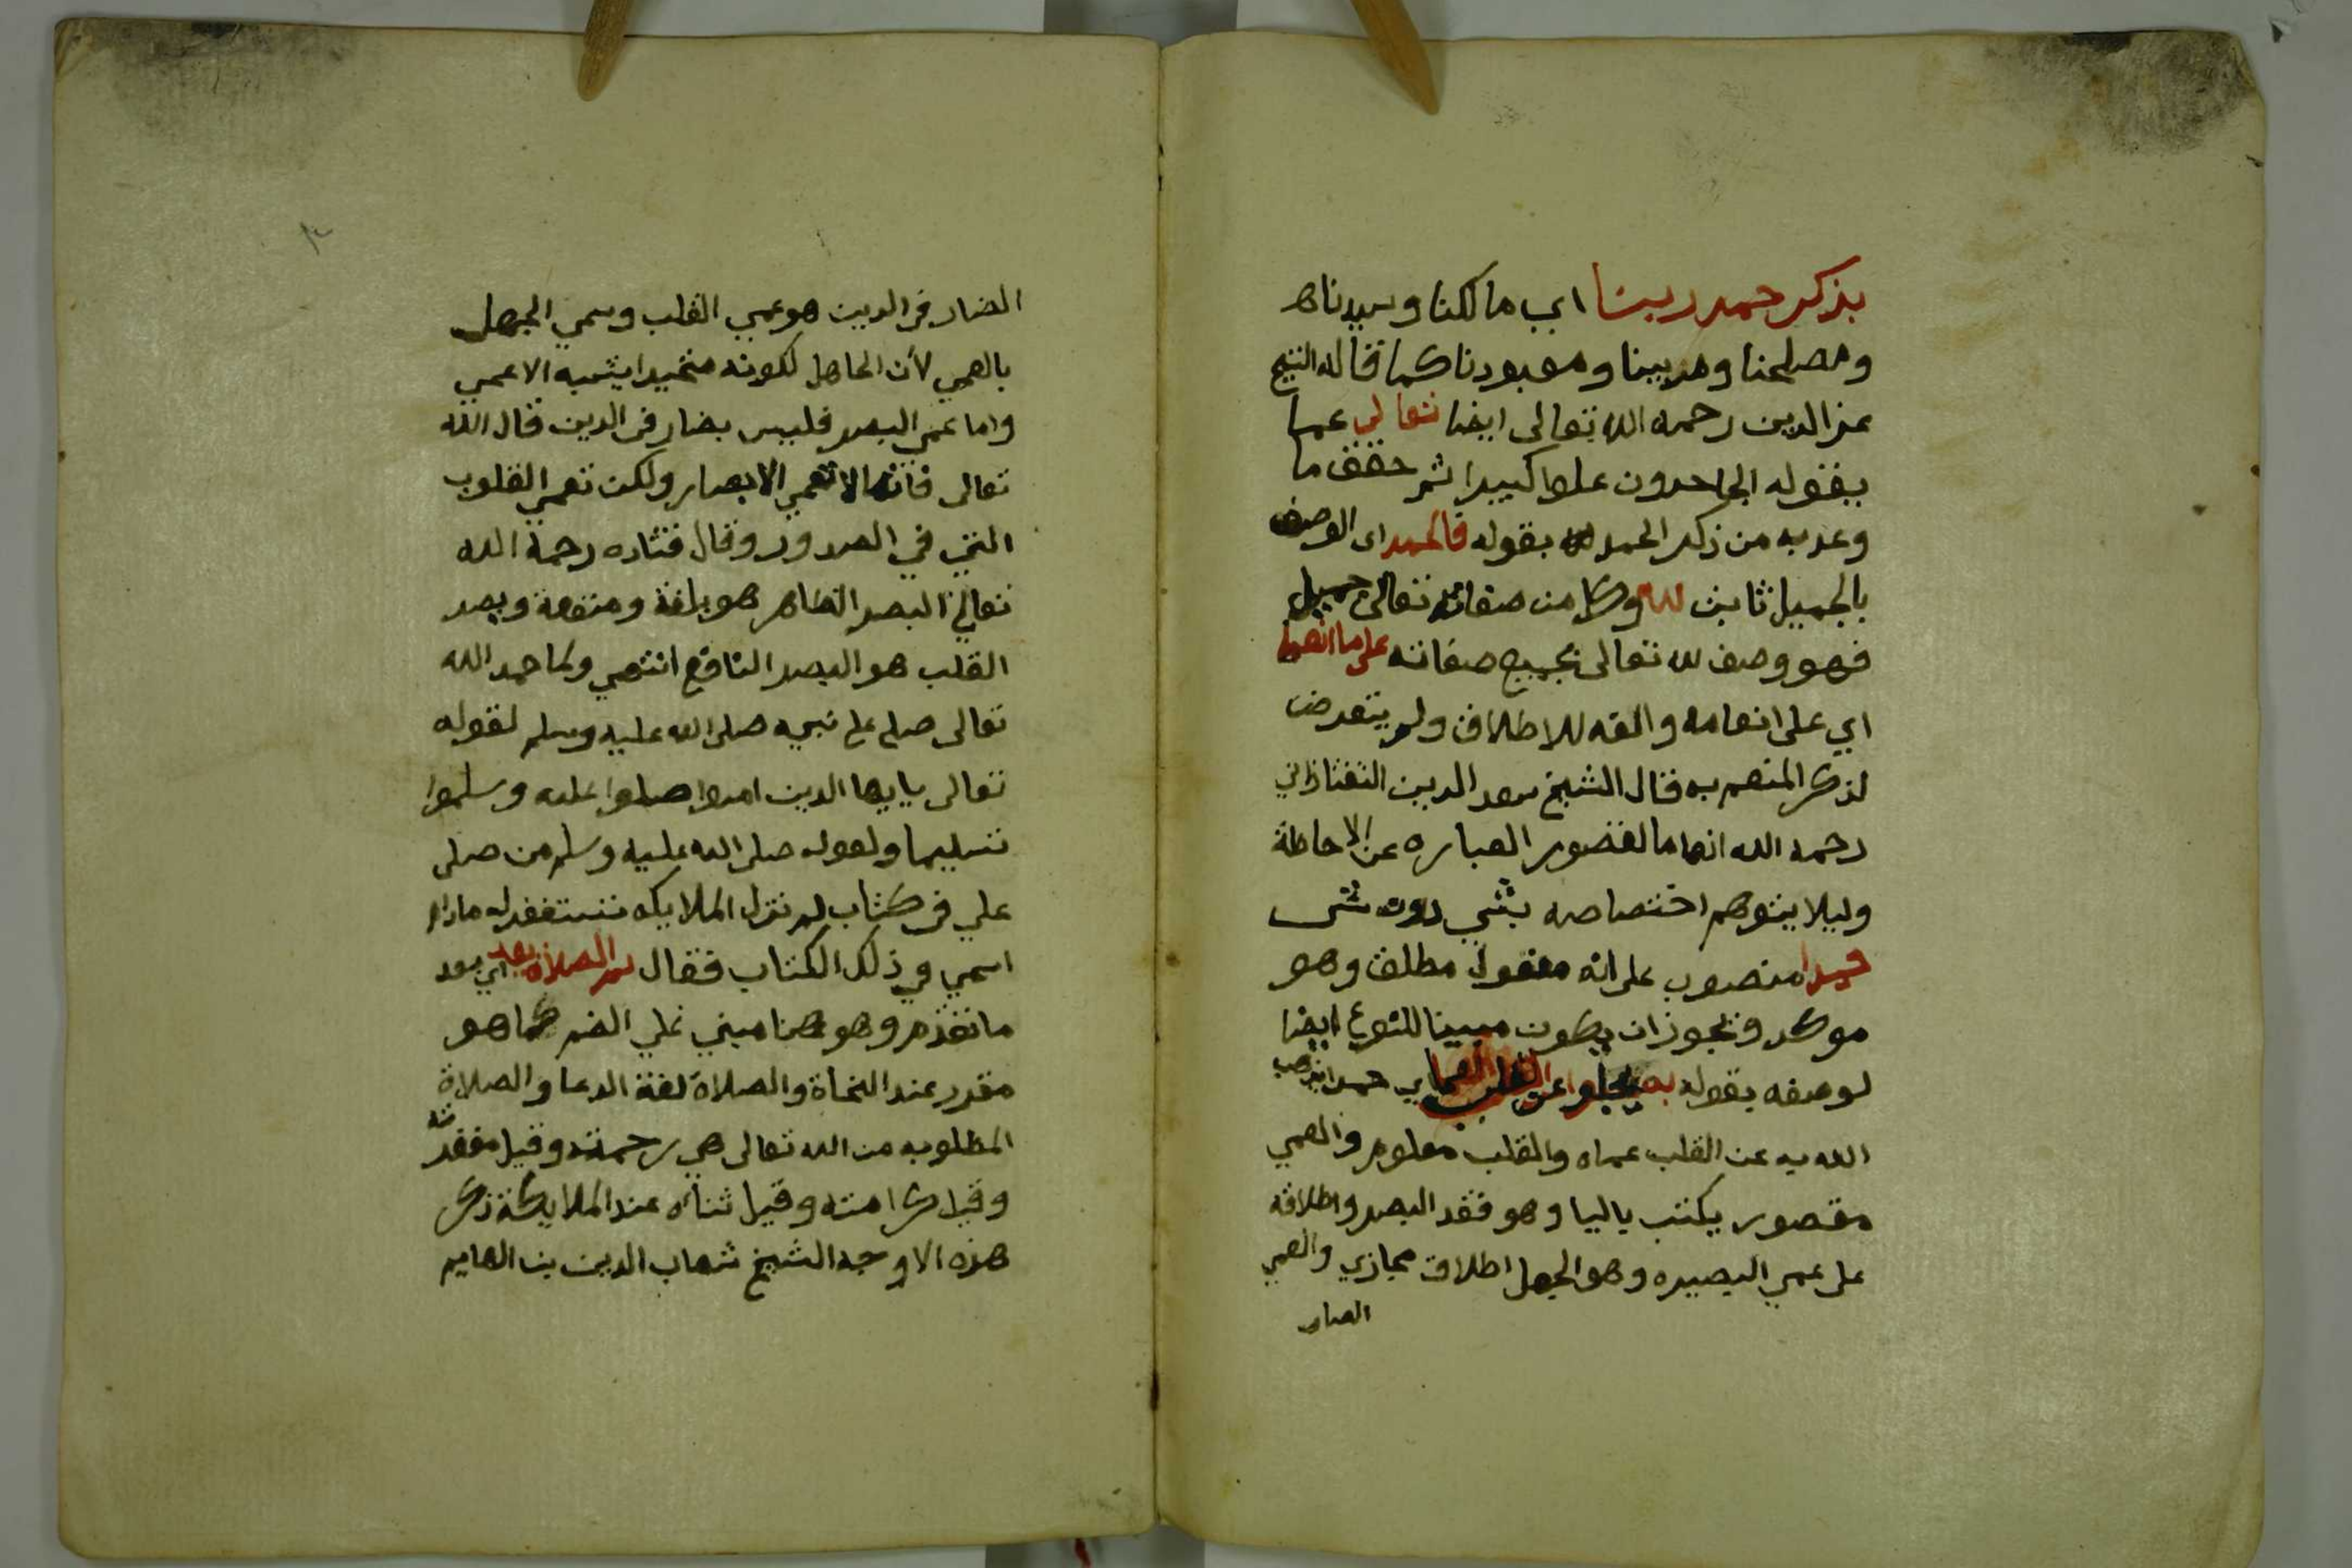 بذكر حمد ربنا اي مالكنا وسيدناه
ومصلحنا ومربينا ومعبودنا كما قاله الشيخ
عز الدين رحمه الله تعالى ايضا تعالى عما
يقوله الجاحدون علوا كبيرا ثم حقق ما
وعد به من ذكر الحمد لله بقوله فالحمد اى الوصف
بالجميل ثابت لله وكل من صفاته تعالى جميل
فهو وصف لله تعالى بجميع صفاته على ما انعما
اي على انعامه والفه للاطلاق ولم يتعرض
لذكر المنعم به قال الشيخ سعد الدين التفتازاني
رحمه الله انعاما لقصور العباره عن الاحاطة
وليلا يتوهم اختصاصه بشي دون شى
حمدا منصوب على انه مفعول مطلق وهو
موكد ويجوز ان يكون مبينا للنوع ايضا
لوصفه بقوله به يجلوا عن القلب العما اي حمدا يذهب
الله به عن القلب عماه والقلب معلوم والعمي
مقصور يكتب باليا وهو فقد البصر واطلاقه
على عمى البصيره وهو الجهل اطلاق مجازي والعمي
الضار
٣
الضار فى الدين هو عمي القلب وسمي الجهل
بالعمي لأن الجاهل لكونه متحيرا يشبه الاعمي
واما عمى البصر فليس بضار فى الدين قال الله
تعالى فانها لا تعمي الابصار ولكن تعمى القلوب
التي في الصدور وقال قتاده رحمة الله
تعالى البصر الظاهر هو بلغة ومنفعة وبصر
القلب هو البصر النافع انتهي ولما حمد الله
تعالى صلى على نبيه صلى الله عليه وسلم لقوله
تعالى يايها الدين امنوا صلوا عليه وسلموا
تسليما ولقوله صلى الله عليه وسلم من صلى
علي فى كتاب لم تزل الملايكه تستغفر له مادام
اسمي في ذلك الكتاب فقال ثم الصلاة بعد اي بعد
ما تقدم وهو هنا مبني علي الضم كما هو
مقرر عند النحاة والصلاة لغة الدعا والصلاة
المطلوبه من الله تعالى هي رحمته وقيل مغفرته
وقيل كرامته وقيل ثناؤه عند الملايكة ذكر
هذه الاوجه الشيخ شهاب الدين بن الهايم